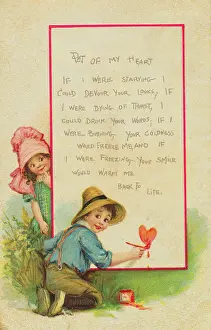 Pet of my Heart
If I were starving I
Could devour your looks, If
I were dying of thirst, I
Could drink your words, If I
Were burning your coldness
Would freeze me and if
I were freezing your smile
would warm me
back to
life.